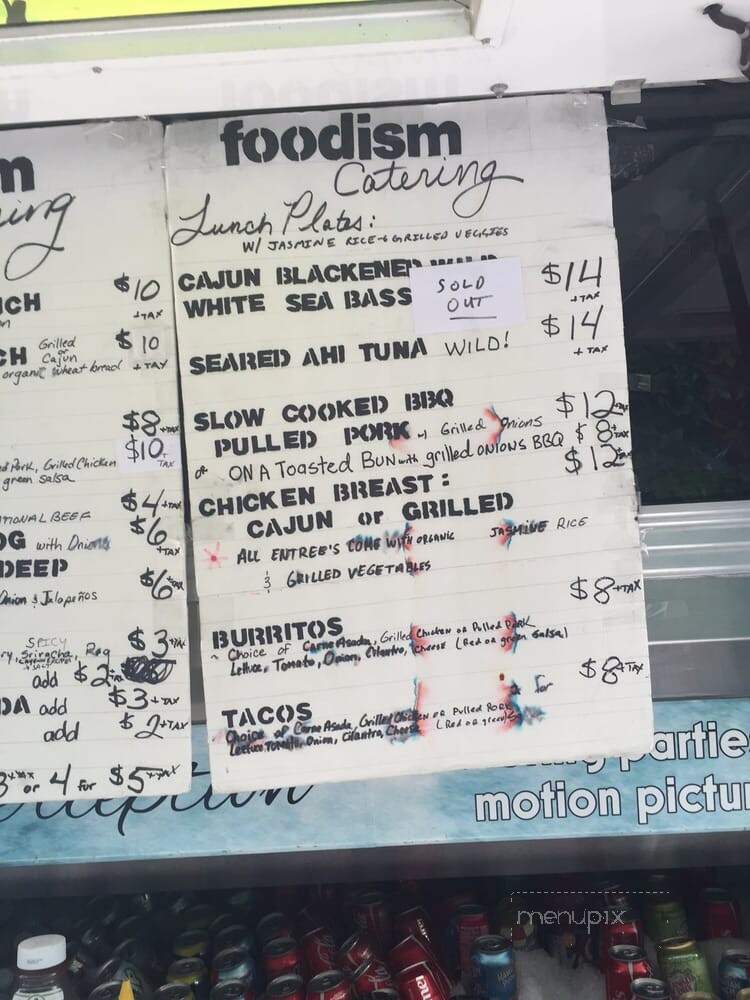 foodism
Catering
Lunch Plates:
W/ JASMINE RICE & GRILLED VEGGIES
CAJUN BLACKENED WILD $14 +TAX
WHITE SEA BASS
SOLD
OUT
SEARED AHI TUNA WILD! $14 + TAX
SLOW COOKED BBQ $12 +TAX
PULLED PORK w/ Grilled Onions
or ON A Toasted BUN with grilled ONIONS BBQ $8 +TAX
CHICKEN BREAST: $12 +TAX
CAJUN or GRILLED
ALL ENTREE'S COME WITH ORGANIC JASMINE RICE
& GRILLED VEGETABLES
BURRITOS $8 +TAX
~ Choice of Carne Asada, Grilled Chicken or Pulled Pork
Lettuce, Tomato, Onion, Cilantro, Cheese (Red or green Salsa)
TACOS for $8 +TAX
Choice of Carne Asada, Grilled Chicken or Pulled Pork
Lettuce Tomato, Onion, Cilantro, Cheese (Red or green)
m
ing
CH $10 +TAX
CH Grilled or Cajun $10 + TAX
organic wheat bread
$8 +TAX
$10 + TAX
d Pork, Grilled Chicken
green salsa
$4 +TAX
TIONAL BEEF
OG with Onions $6 +TAX
DEEP
Onion & Jalapeños $6 +TAX
SPICY
ry, Sriracha, Reg $3 +TAX
add $2
DA add $3 + TAX
add $2 +TAX
3 +TAX or 4 for $5 +TAX
ception
parties
motion pictur
menupix